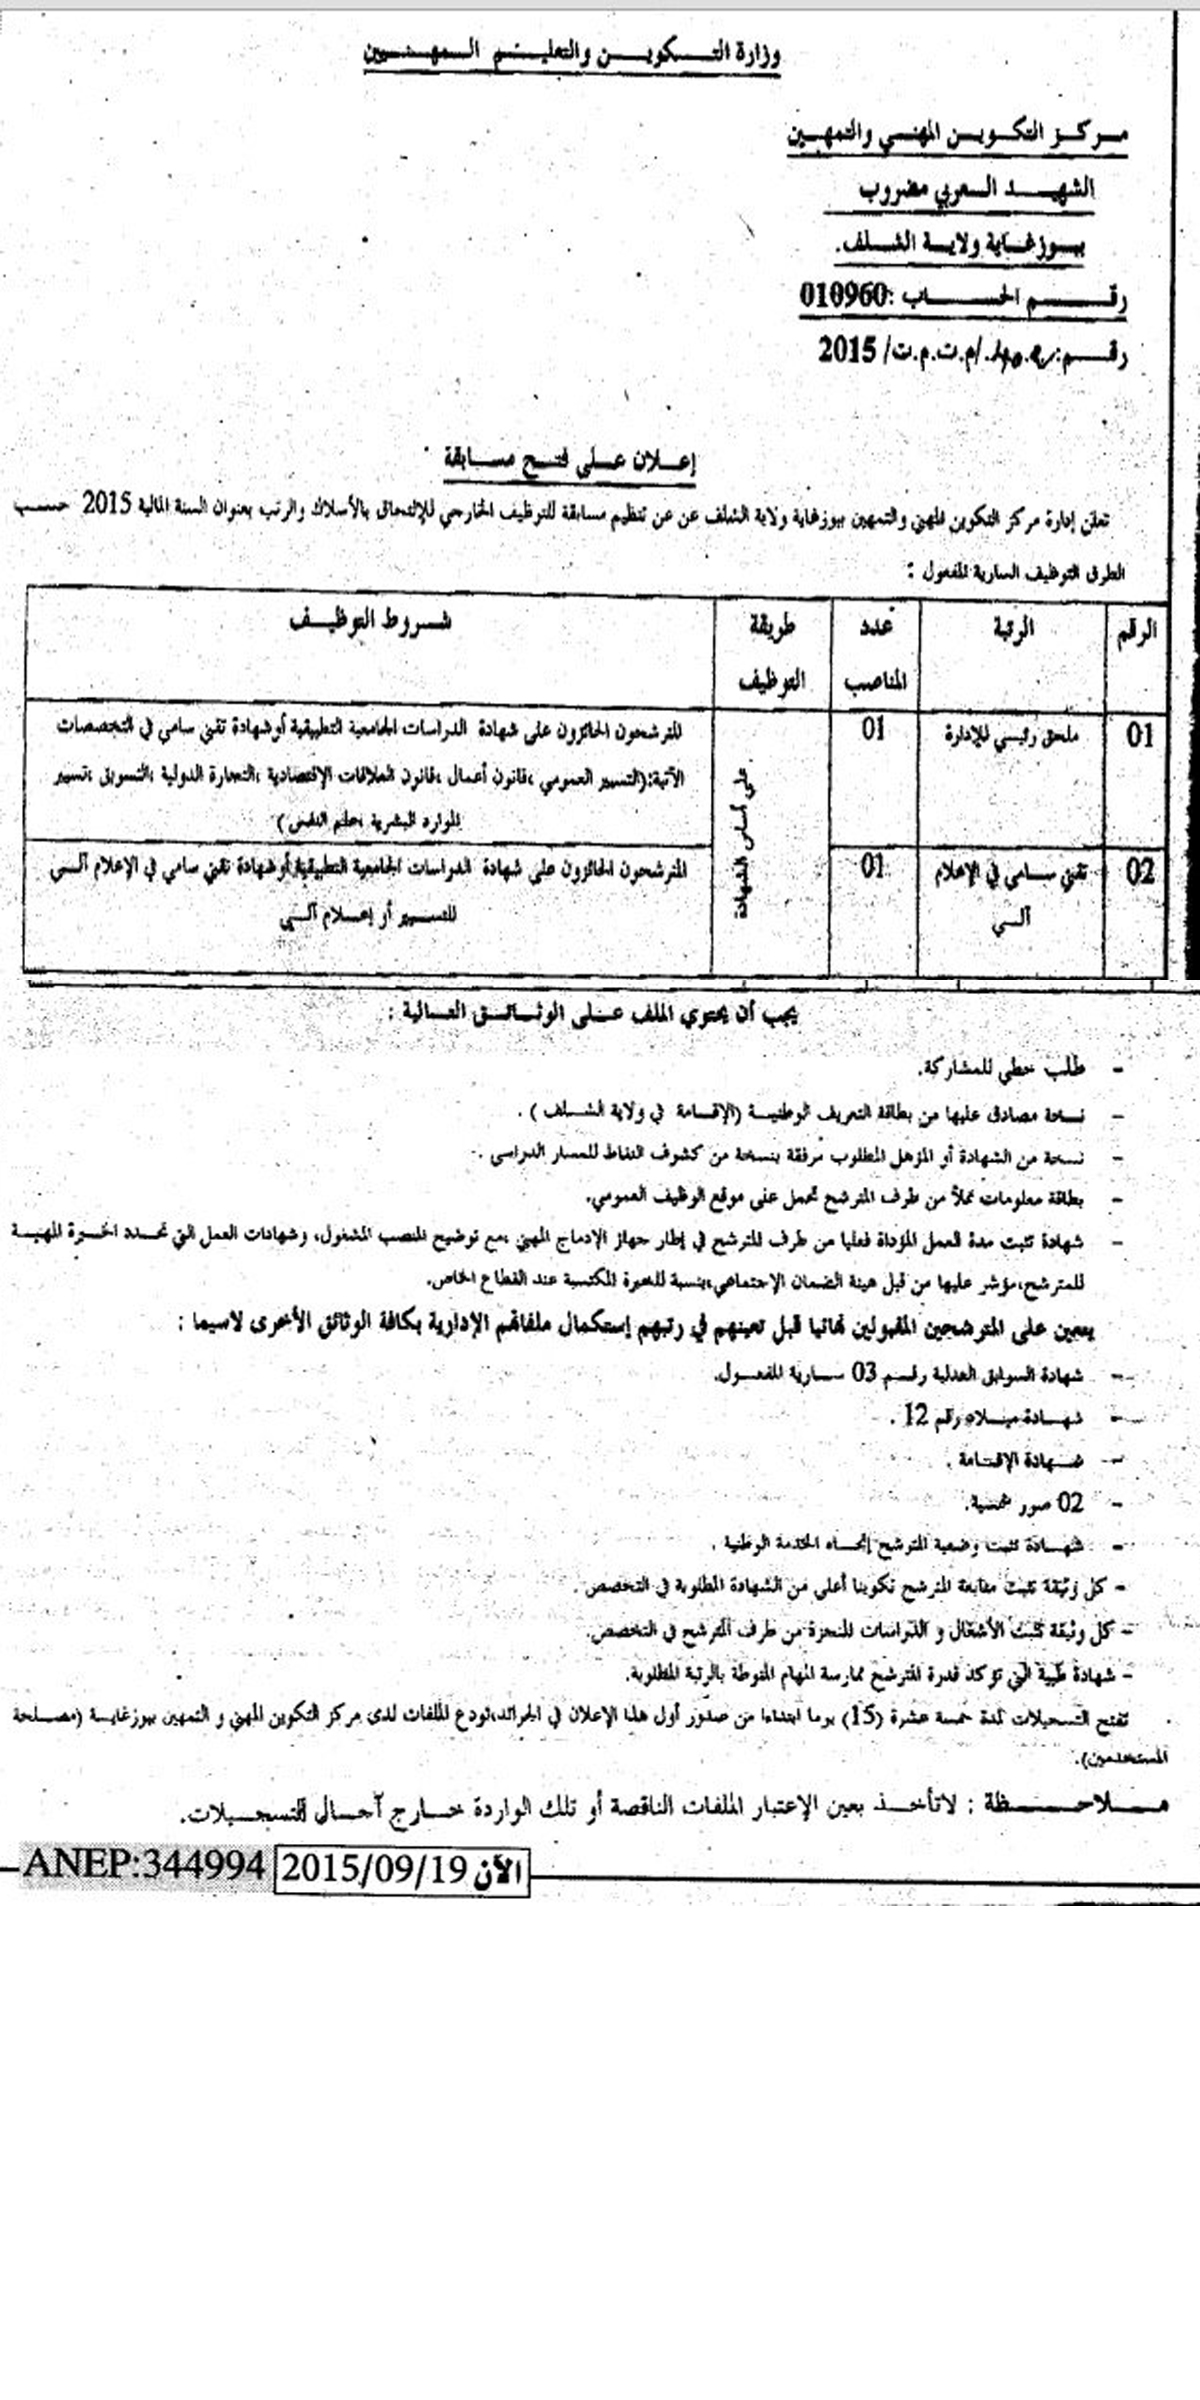 وزارة التـــكويـــن والتعليـــم المـــهنـــيين
مـركـز التكـويـن المهني والتمهـين
الشهيـــد العـربي مضروب
بـوزغـاية ولايـة الشـلف.
رقـــم الحـــاب :010960
رقـــم: /م.ت.م.ت/ 2015
إعـلان عـلى فتـح مسـابقة
تعلن إدارة مركز التكوين المهني والتمهين ببوزغاية ولاية الشلف عن عن تنظيم مسابقة للتوظيف الخارجي للإلتحاق بالأسلاك والرتب بعنوان السنة المالية 2015 حسـب
الطرق التوظيف السارية المفعول :
الرقم الرتبة عدد المناصب طريقة التوظيف شـروط التوظيـف
01 ملحق رئيسي للإدارة 01 على أساس الشهادة المترشحون الحائزون على شهادة الدراسات الجامعية التطبيقية أوشهادة تقني سامي في التخصصات
الآتية:(التسيير العمومي ،قانون أعمال ،قانون العلاقات الإقتصادية ،التجارة الدولية ،التسويق ،تسيير
الموارد البشرية ،علم النفس )
02 تقني سـامي في الإعلام آلـي 01 المترشحون الحائزون على شهادة الدراسات الجامعية التطبيقية أوشهادة تقني سامي في الإعلام آلـي
للتسـيير أو إعـلام آلـي
يجب أن يحتوي الملف عـلى الوثـائـق التـالية :
- طلب خطي للمشاركة.
- نسـخة مصادق عليها من بطاقة التعريف الوطنيـة (الإقـامة في ولاية الشـلف ) .
- نسخة من الشهادة أو المؤهل المطلوب مرفقة بنسخة من كشوف النقاط للمسار الدراسي .
- بطاقة معلومات تملأ من طرف المترشح تحمل على موقع الوظيف العمومي.
- شهادة تثبت مدة العمل المؤداة فعليا من طرف المترشح في إطار جهاز الإدماج المهني ،مع توضيح المنصب المشغول، وشهادات العمل التي تحـدد الخـبرة المهنيـة
للمترشح،مؤشر عليها من قبل هيئة الضمان الإجتماعي،بنسبة للخبرة المكتسبة عند القطاع الخاص.
يتعين على المترشحين المقبولين نهائيا قبل تعينهم في رتبهم إستكمال ملفاتهم الإدارية بكافة الوثائق الأخرى لاسيما :
- شهادة السوابق العدلية رقـم 03 سـارية المفعـول.
- شهـادة ميـلاد رقم 12 .
- شهـادة الإقـامة .
- 02 صور شمسية.
- شهـادة تثبت وضعية المترشح إتجـاه الخدمة الوطنية .
- كل وثيقة تثبت متابعة المترشح تكوينا أعلى من الشهادة المطلوبة في التخصص .
- كل وثيقة تثبت الأشغال و الدراسات المنجزة من طرف المترشح في التخصص.
- شهادة طبية التي تؤكد قدرة المترشح ممارسة المهام المنوطة بالرتبة المطلوبة.
تفتح التسجيلات لمدة خمسة عشرة (15) يوما ابتداءا من صدور أول هذا الإعلان في الجرائد،تودع الملفات لدى مركز التكوين المهني و التمهين ببوزغايـة (مصـلحة
المستخدمين).
مـــلاحـــظة : لاتأخـذ بعين الإعتبار الملفات الناقصة أو تلك الواردة خـارج آجـال التسجـيلات.
ANEP:344994 الآن 2015/09/19